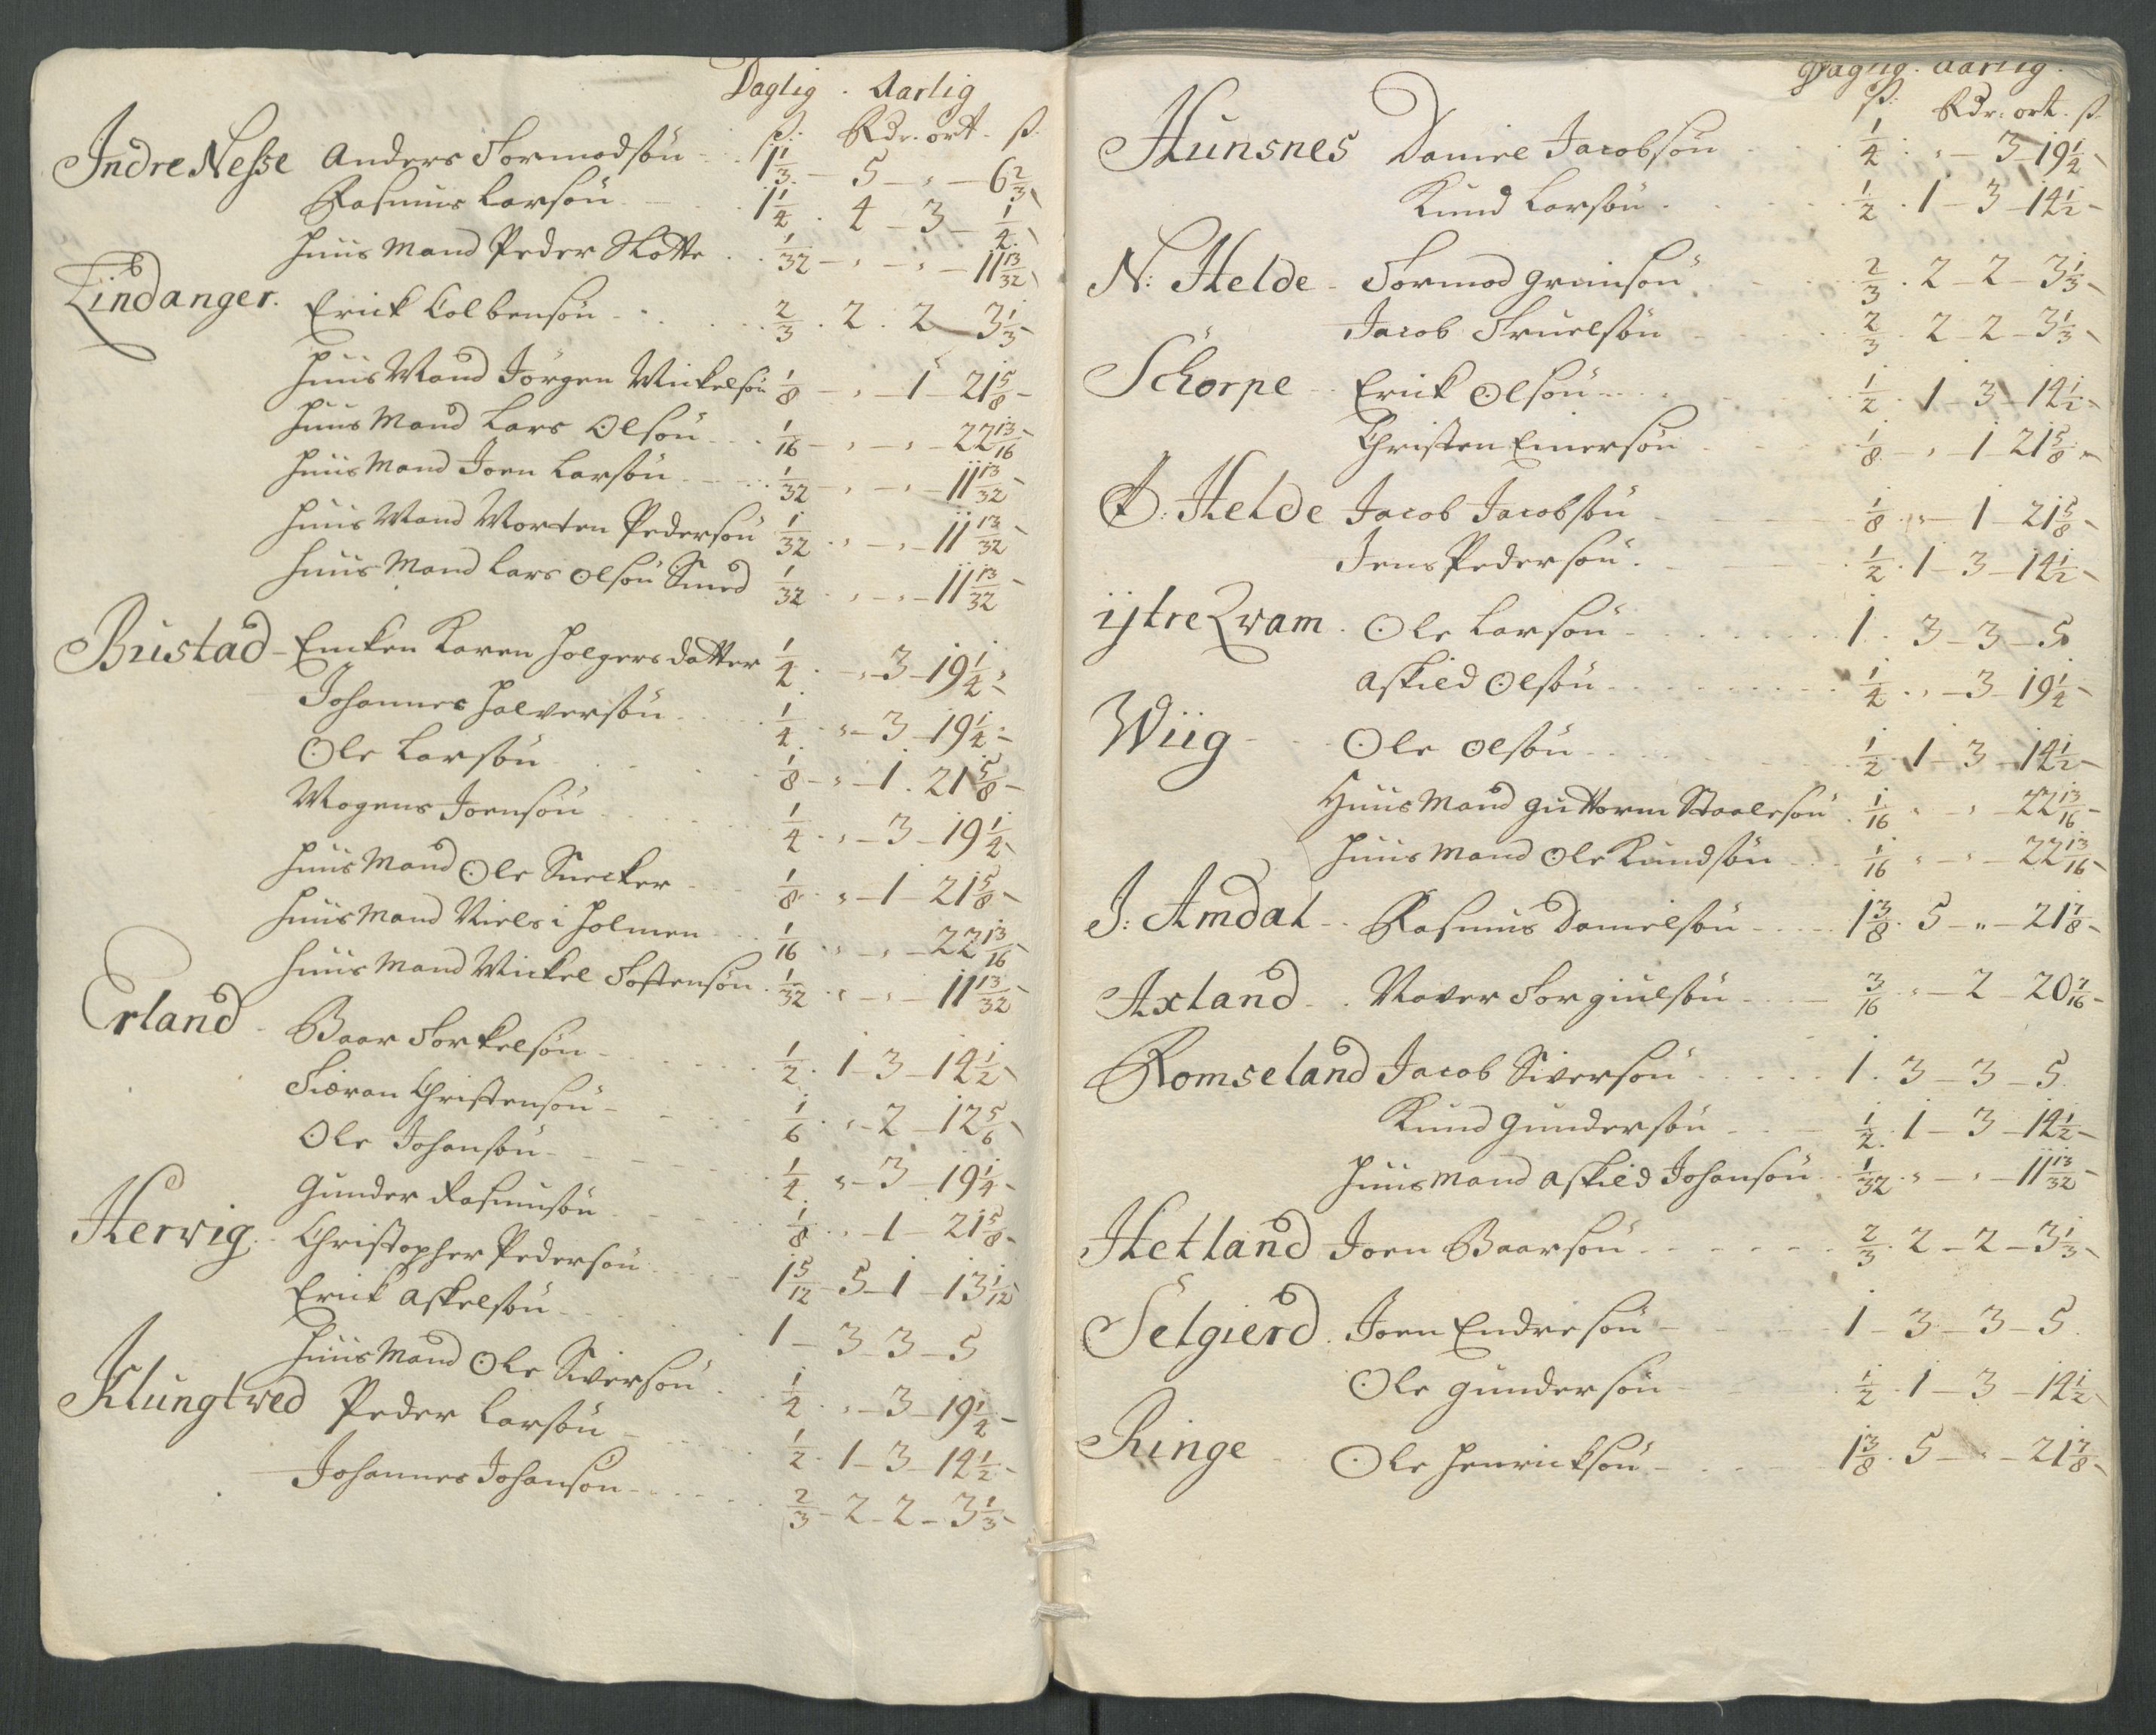 Daglig . Aarlig
ß. Rdr. ort. ß.
Indre Nesse Anders Tormodsøn 1 1/3 - 5 - „ - 6 2/3
Rasmus Larsøn 1 1/4 . 4 - 3 - 1/4
Huus Mand Peder Skotte 1/32 - „ - „ - 11 13/32
Lindanger. Erick Colbensøn 2/3 . 2 . 2 - 3 1/3
Huus Mand Jørgen Mickelsøn 1/8 - „ - 1 - 21 5/8
Huus Mand Lars Olsøn 1/16 - „ - „ - 22 13/16
Huus Mand Joen Larsøn 1/32 - „ - „ - 11 13/32
Huus Mand Morten Pedersøn 1/32 . „ - „ - 11 13/32
Huus Mand Lars Olsøn Smed 1/32 . „ - „ - 11 13/32
Bustad - Encken Karen Holgers datter 1/4 . „ - 3 - 19 1/4
Johannes Halversøn 1/4 . „ - 3 - 19 1/4
Ole Larsøn 1/8 - „ - 1 . 21 5/8
Mogens Joensøn 1/4 . „ - 3 - 19 1/4
Huus Mand Ole Snecker 1/8 . „ - 1 - 21 5/8
Huus Mand Niels i Holmen 1/16 „ - „ - 22 13/16
Huus Mand Mickel Tostensøn 1/32 . „ - „ - 11 13/32
Erland - Baar Torkelsøn 1/2 . 1 - 3 - 14 1/2
Siøran Christensøn 1/6 . „ - 2 - 12 5/6
Ole Johansøn 1/4 „ - 3 - 19 1/4
Gunder Rasmusøn 1/8 . „ - 1 - 21 5/8
Hervig. Christopher Pedersøn 1 5/12 - 5 - 1 - 13 1/12
Erick Askelsøn 1 - 3 - 3 - 5
Huus Mand Ole Siversøn 1/4 . „ - 3 - 19 1/4
Klungtved Peder Larsøn 1/2 . 1 - 3 - 14 1/2
Johannes Johansøn 2/3 - 2 - 2 - 3 1/3
Daglig . Aarlig.
ß: Rdr. ort. ß.
Hunsnes Daniel Jacobsøn 1/4 . „ - 3 - 19 1/4
Knud Larsøn 1/2 . 1 - 3 - 14 1/2
N: Helde - Tormod Grimsøn 2/3 . 2 - 2 - 3 1/3
Jacob Truelsøn 2/3 . 2 - 2 - 3 1/3
Schorpe Erick Olsøn 1/2 . 1 - 3 - 14 1/2
Christen Einersøn 1/8 - „ - 1 - 21 5/8
Ø: Helde Jacob Jacobsøn 1/8 . „ - 1 - 21 5/8
Jens Pedersøn 1/2 . 1 - 3 - 14 1/2
ijtre Qvam . Ole Larsøn 1 . 3 - 3 - 5
Askild Olsøn 1/4 . „ - 3 - 19 1/4
Wiig Ole Olsøn 1/2 . 1 - 3 - 14 1/2
Huus Mand Guttorm Staalesøn 1/16 „ - „ - 22 13/16
Huus Mand Ole Knudsøn 1/16 „ - „ - 22 13/16
J: Amdal - Rasmus Danielsøn 1 3/8 . 5 - „ - 21 7/8
Axland - Naver Torgiulsøn 3/16 „ - 2 - 20 7/16
Romseland Jacob Siversøn 1 . 3 - 3 - 5
Knud Gundersøn 1/2 . 1 - 3 - 14 1/2
Huus Mand Askild Johansøn 1/32 „ - „ - 11 13/32
Hetland Joen Baarsøn 2/3 . 2 - 2 - 3 1/3
Selgierd. Joen Endresøn 1 - 3 - 3 - 5
Ole Gundersøn 1/2 . 1 - 3 - 14 1/2
Ringe Ole Henricksøn 1 3/8 . 5 - „ - 21 7/8